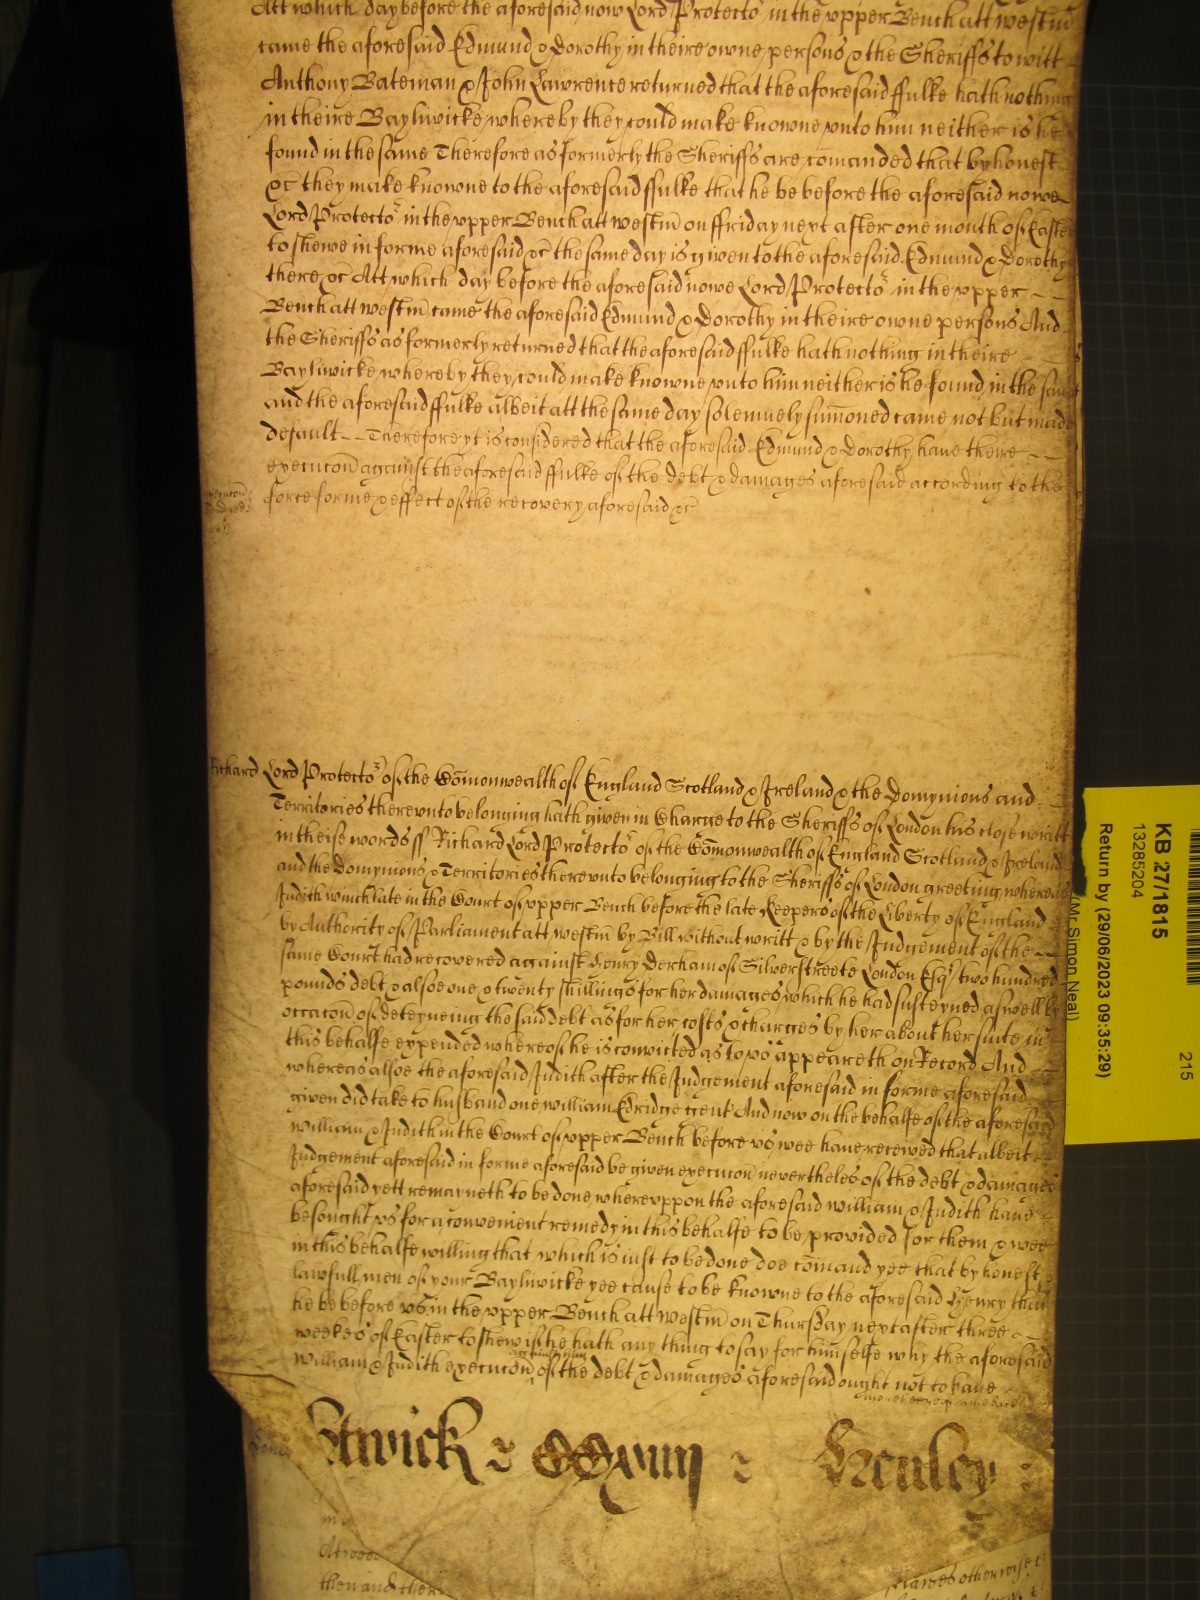 Att which day before the aforesaid now Lord Protecto:r in the vpper Bench att westm̄
came the aforesaid Edmund & Dorothy in theire owne persons & the Sheriffs to witt
Anthony Bateman & John Lawrence returned that the aforesaid ffulke hath nothing
in theire Bayliwicke whereby they could make knowne vnto him neither is he
found in the same Therefore as formerly the Sheriffs are com̄anded that by honest
&c̄ they make knowne to the aforesaid ffulke that he be before the aforesaid nowe
Lord Protecto:r in the vpper Bench att westm̄ on ffriday next after one month of Easter
to shewe in forme aforesaid &c̄ the same day is given to the aforesaid Edmund & Dorothy
there &c̄ Att which day before the aforesaid nowe Lord Protecto:r in the vpper
Bench att westm̄ came the aforesaid Edmund & Dorothy in theire owne persons And
the Sheriffs as formerly returned that the aforesaid ffulke hath nothing in theire
Bayliwicke whereby they could make knowne vnto him neither is he found in the same
and the aforesaid ffulke albeit att the same day solemnely sum̄oned came not but made
default Therefore yt is considered that the aforesaid Edmund & Dorothy have theire
execucōn against the aforesaid ffulke of the debt & damages aforesaid according to the
force forme & effect of the recovery aforesaid &c̄
Richard Lord Protecto:r of the Com̄onwealth of England Scotland & Ireland & the Domynions and
Territories therevnto belonging hath given in Charge to the Sheriffs of London his close writt
in theise words ss Richard Lord Protecto:r of the Com̄onwealth of England Scotland & Ireland
and the Domynions & Territories therevnto belonging to the Sheriffs of London greeting whereas
Judith winch late in the Court of vpper Bench before the late Keepers of the Liberty of England
by Authority of Parliament att westm̄ by Bill without writt & by the Judgement of the
same Court had recovered against Henry Derham of Silverstreete London Esq:r two hundred
pounds debt & alsoe one & twenty shillings for her damages which he had susteyned aswell by
occacōn of deteyneing the said debt as for her costs & charges by her about her suite in
this behalfe expended whereof he is convicted as to vs appeareth on Record And
whereas alsoe the aforesaid Judith after the Judgement aforesaid in forme aforesaid
given did take to husband one william Edridge gent And now on the behalfe of the aforesaid
william & Judith in the Court of vpper Bench before vs wee have received that albeit
Judgement aforesaid in forme aforesaid be given execucōn nevertheles of the debt & damages
aforesaid yett remayneth to be done wherevppon the aforesaid william & Judith have
besought vs for a convenient remedy in this behalfe to be provided for them & wee
in this behalfe willing that which is iust to be done doe com̄and yee that by honest
lawfull men of your Bayliwicke yee cause to be knowne to the aforesaid Henry that
he be before vs in the vpper Bench att westm̄ on Thursday next after three
weekes of Easter to shew if he hath any thing to say for himselfe why the aforesaid
against him
william & Judith execucōn of the debt & damages aforesaid ought not to have
Henley
Atwood
then and there
otherwise
KB 27/1815
13285204
215
Return by (29/06/2023 09:35:29)
(Mr Simon Neal)